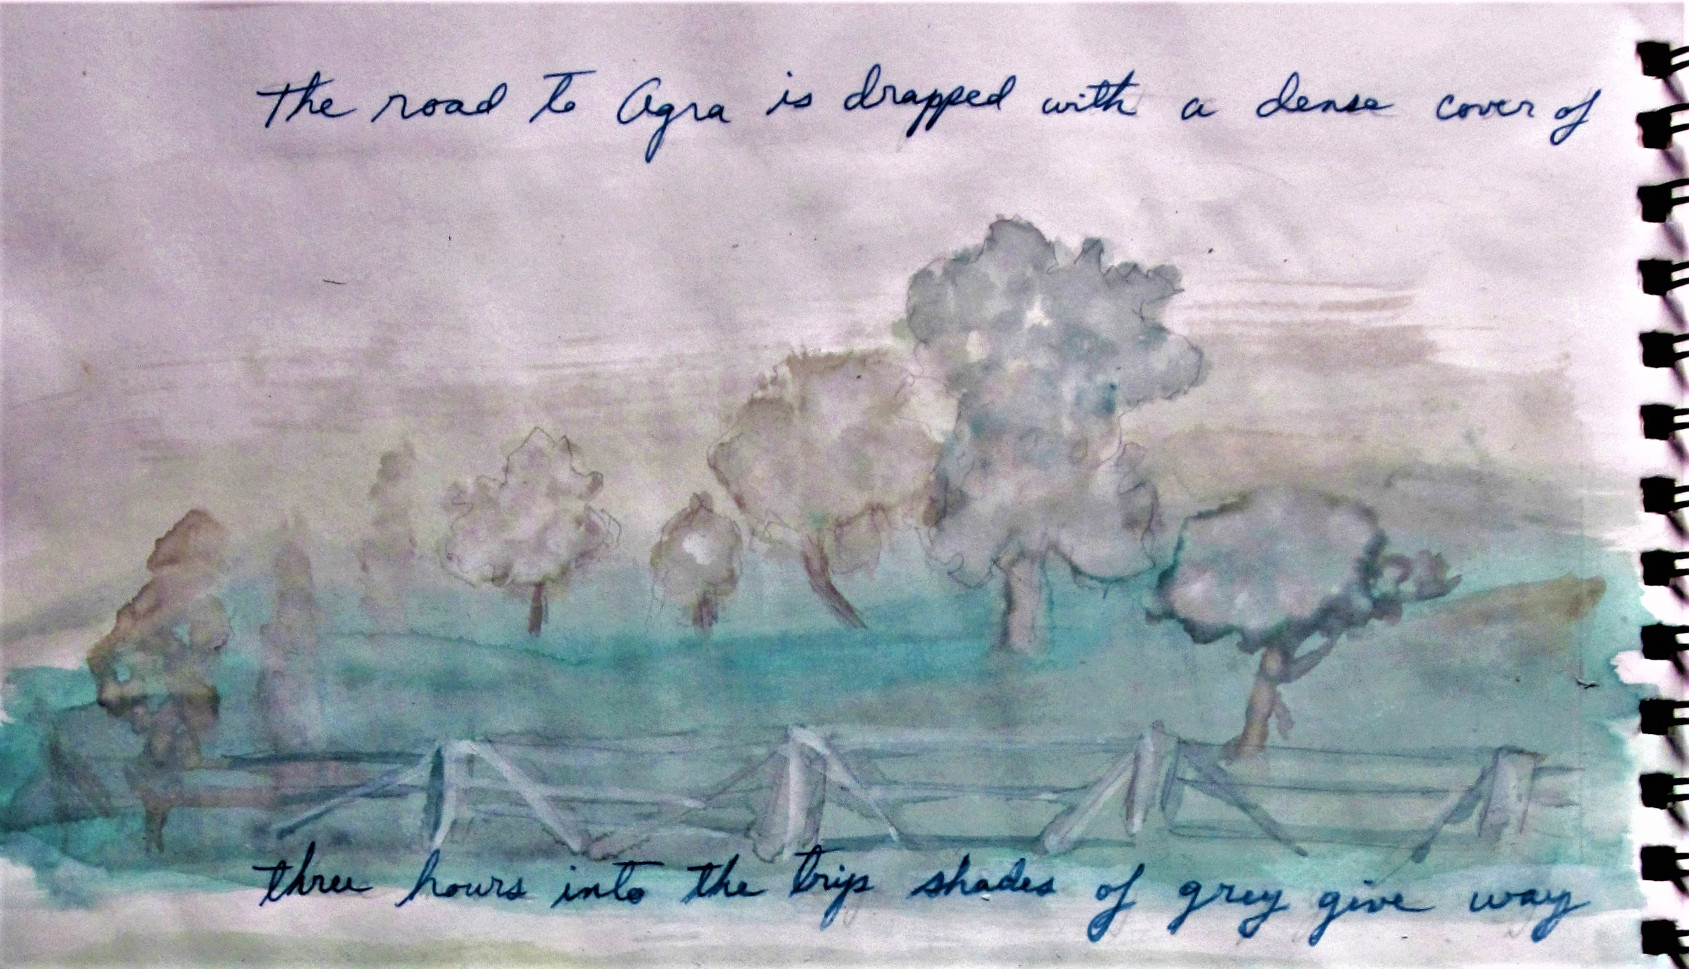 The road to Agra is drapped with a dense cover of
three hours into the trip shades of grey give way